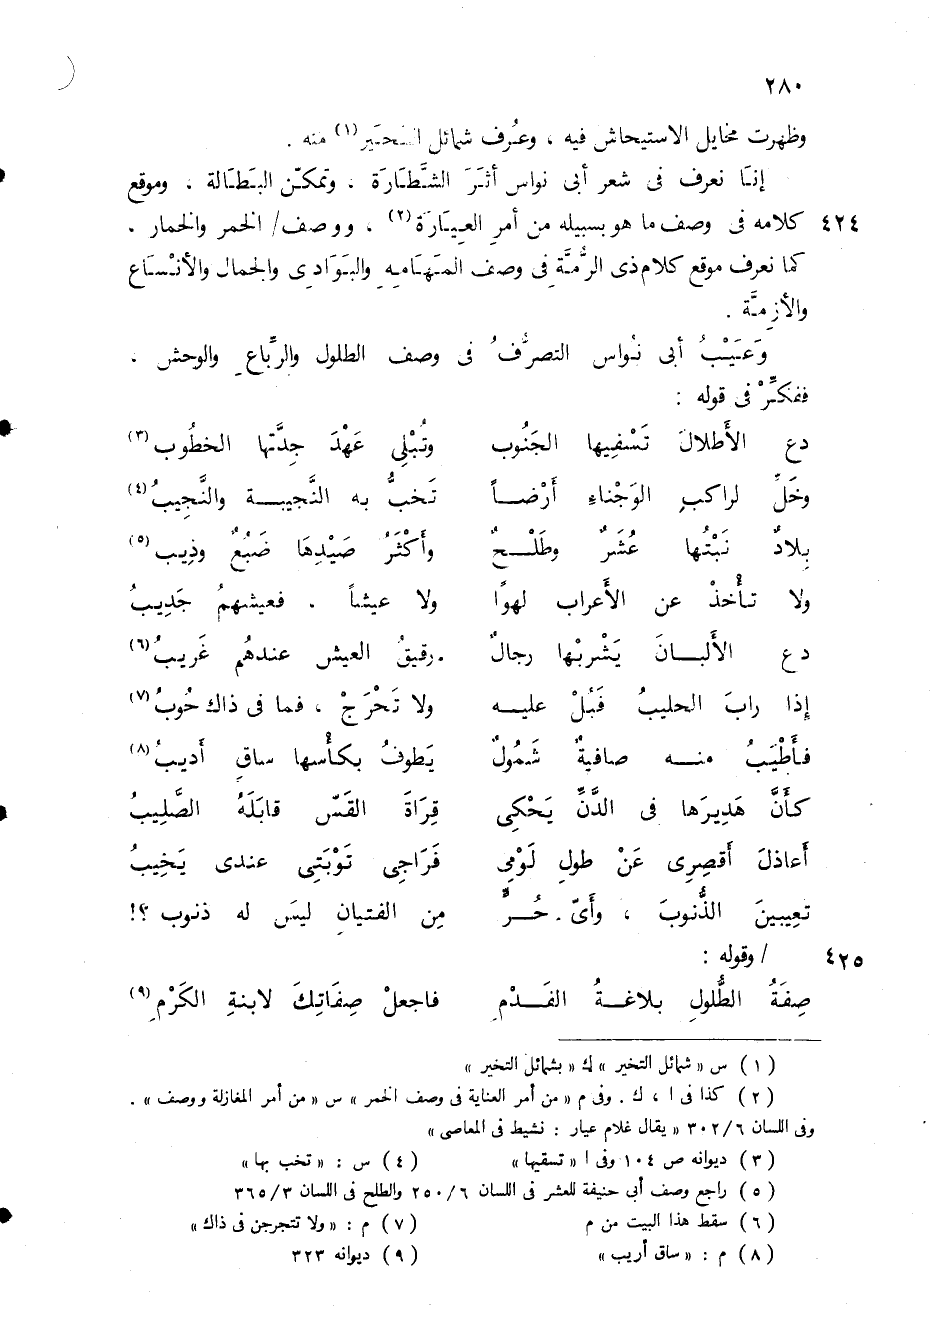 ٢٨٠
وظهرت مخايل الاستيحاش فيه ، وعُرف شمائل التحيّر (١) منه .
إنـا نعرف فى شعر أبى نواس أثـرَ الشَّطـارَة ، وتمكـن البـَطـالة ، وموقع
٤٢٤ كلامه فى وصف ما هو بسبيله من أمر العيـارَة (٢) ، ووصف/ الخمر والخمار .
كما نعرف موقع كلام ذى الرُّمَّة فى وصف المـَهـامـه والبـَوادى والجمال والأنْسـاع
والأزمـَّة .
وعَيـْبُ أبى نـُواس التصرُّفُ فى وصف الطلول والرِّباع والوحش .
ففكـِّرْ فى قوله :
دع الأَطلالَ تَسْفيها الجَنُوب وتُبْلِى عَهْدَ جِدَّتها الخطُوب (٣)
وخَلِّ لراكبِ الوَجْناءِ أَرْضـاً تَخبُّ به النَّجيبـة والنَّجيبُ (٤)
بلادٌ نَبْتُها عُشَرٌ وطَلْـحٌ وأَكْثَرُ صَيْدِهَا ضَبُعٌ وذِيب (٥)
ولا تـأْخذْ عن الأَعراب لهوًا ولا عيشاً . فعيشهمُ جَدِيبُ
دع الأَلبـانَ يَشْربُها رجالٌ رقيقُ العيش عندهُم غَريبُ (٦)
إِذا رابَ الحليبُ فَبُلْ عليـه ولا تَحْرَجْ ، فما فى ذاك حُوبُ (٧)
فأَطْيَبُ منـه صافيةٌ شَمُولٌ يَطوفُ بكأْسها ساقٍ أَديبُ (٨)
كأَنَّ هَدِيرَها فى الدَّنِّ يَحْكِى قِرَاةَ القَسِّ قابَلَهُ الصَّلِيبُ
أَعاذلَ أَقصِرِى عَنْ طولِ لَوْمِى فَرَاجِى تَوْبَتِى عندى يَخِيبُ
تعِيبينَ الذُّنوبَ ، وأَىّ حُـرٍّ مِن الفتيان ليسَ له ذنوب ؟!
٤٢٥ / وقوله :
صِفَةُ الطُّلولِ بلاغـةُ الفَـدْمِ فاجعلْ صِفَاتِكَ لابنةِ الكَرْمِ (٩)
(١) س « شمائل التخير » ك « بشمائل التخير »
(٢) كذا فى ا ، ك . وفى م « من أمر العناية فى وصف الخمر » س « من أمر المغازلة ووصف » .
وفى اللسان ٣٠٢/٦ « يقال غلام عيار : نشيط فى المعاصى »
(٣) ديوانه ص ١٠٤ وفى ا « تسقيها » (٤) س : « تخب بها »
(٥) راجع وصف أبى حنيفة للعشر فى اللسان ٢٥٠/٦ والطلح فى اللسان ٣٦٥/٣
(٦) سقط هذا البيت من م (٧) م : « ولا تتجرجن فى ذاك »
(٨) م : « ساق أريب » (٩) ديوانه ٣٢٣